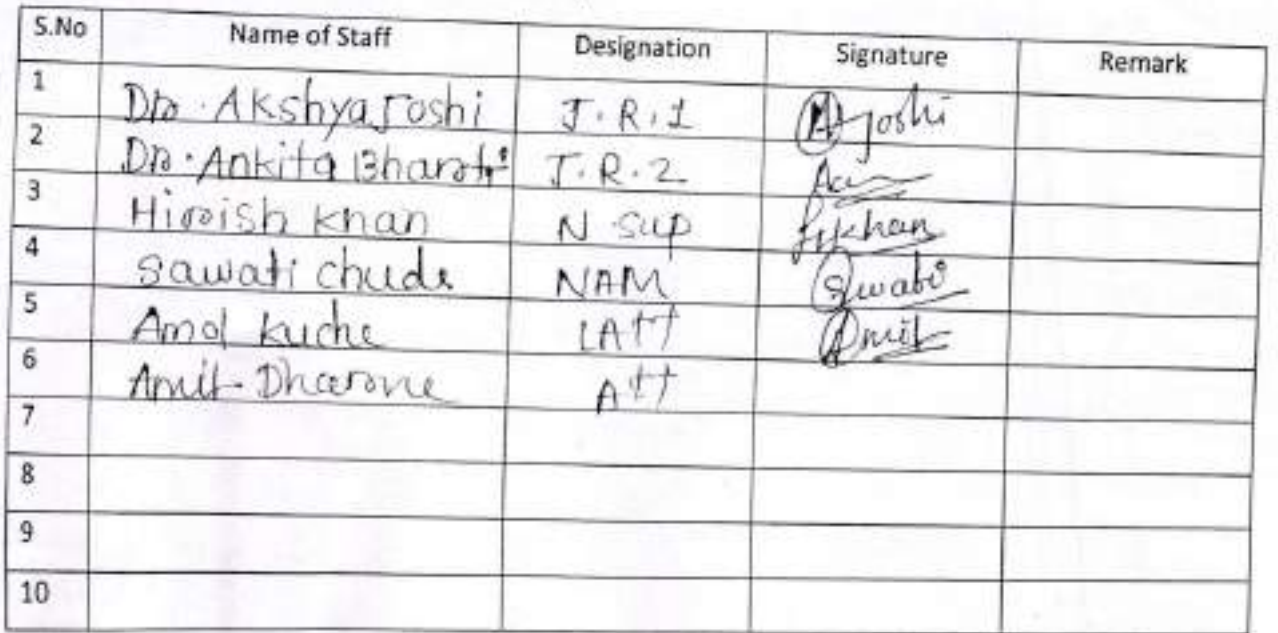 S.No Name of Staff Designation Signature Remark
1 Dr. Akshya Joshi J.R.1 AJoshi
2 Dr. Ankita Bharati J.R.2
3 Hirish Khan N sup Khan
4 Sawati chude NAM Swati
5 Amol kuche LAtt Amit
6 Amit Dharone Att
7
8
9
10